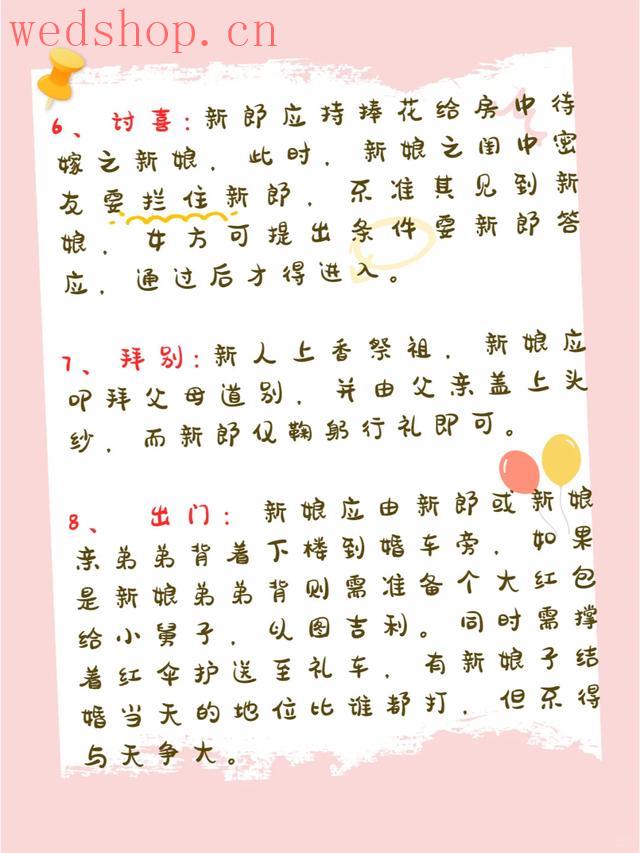 wedshop.cn
6、讨喜：新郎应持捧花给房中待
嫁之新娘，此时，新娘之闺中密
友要拦住新郎，不准其见到新
娘，女方可提出条件要新郎答
应，通过后才得进入。
7、拜别：新人上香祭祖，新娘应
叩拜父母道别，并由父亲盖上头
纱，而新郎仅鞠躬行礼即可。
8、 出门： 新娘应由新郎或新娘
亲弟弟背着下楼到婚车旁，如果
是新娘弟弟背则需准备个大红包
给小舅子，以图吉利。同时需撑
着红伞护送至礼车，有新娘子结
婚当天的地位比谁都打，但不得
与天争大。